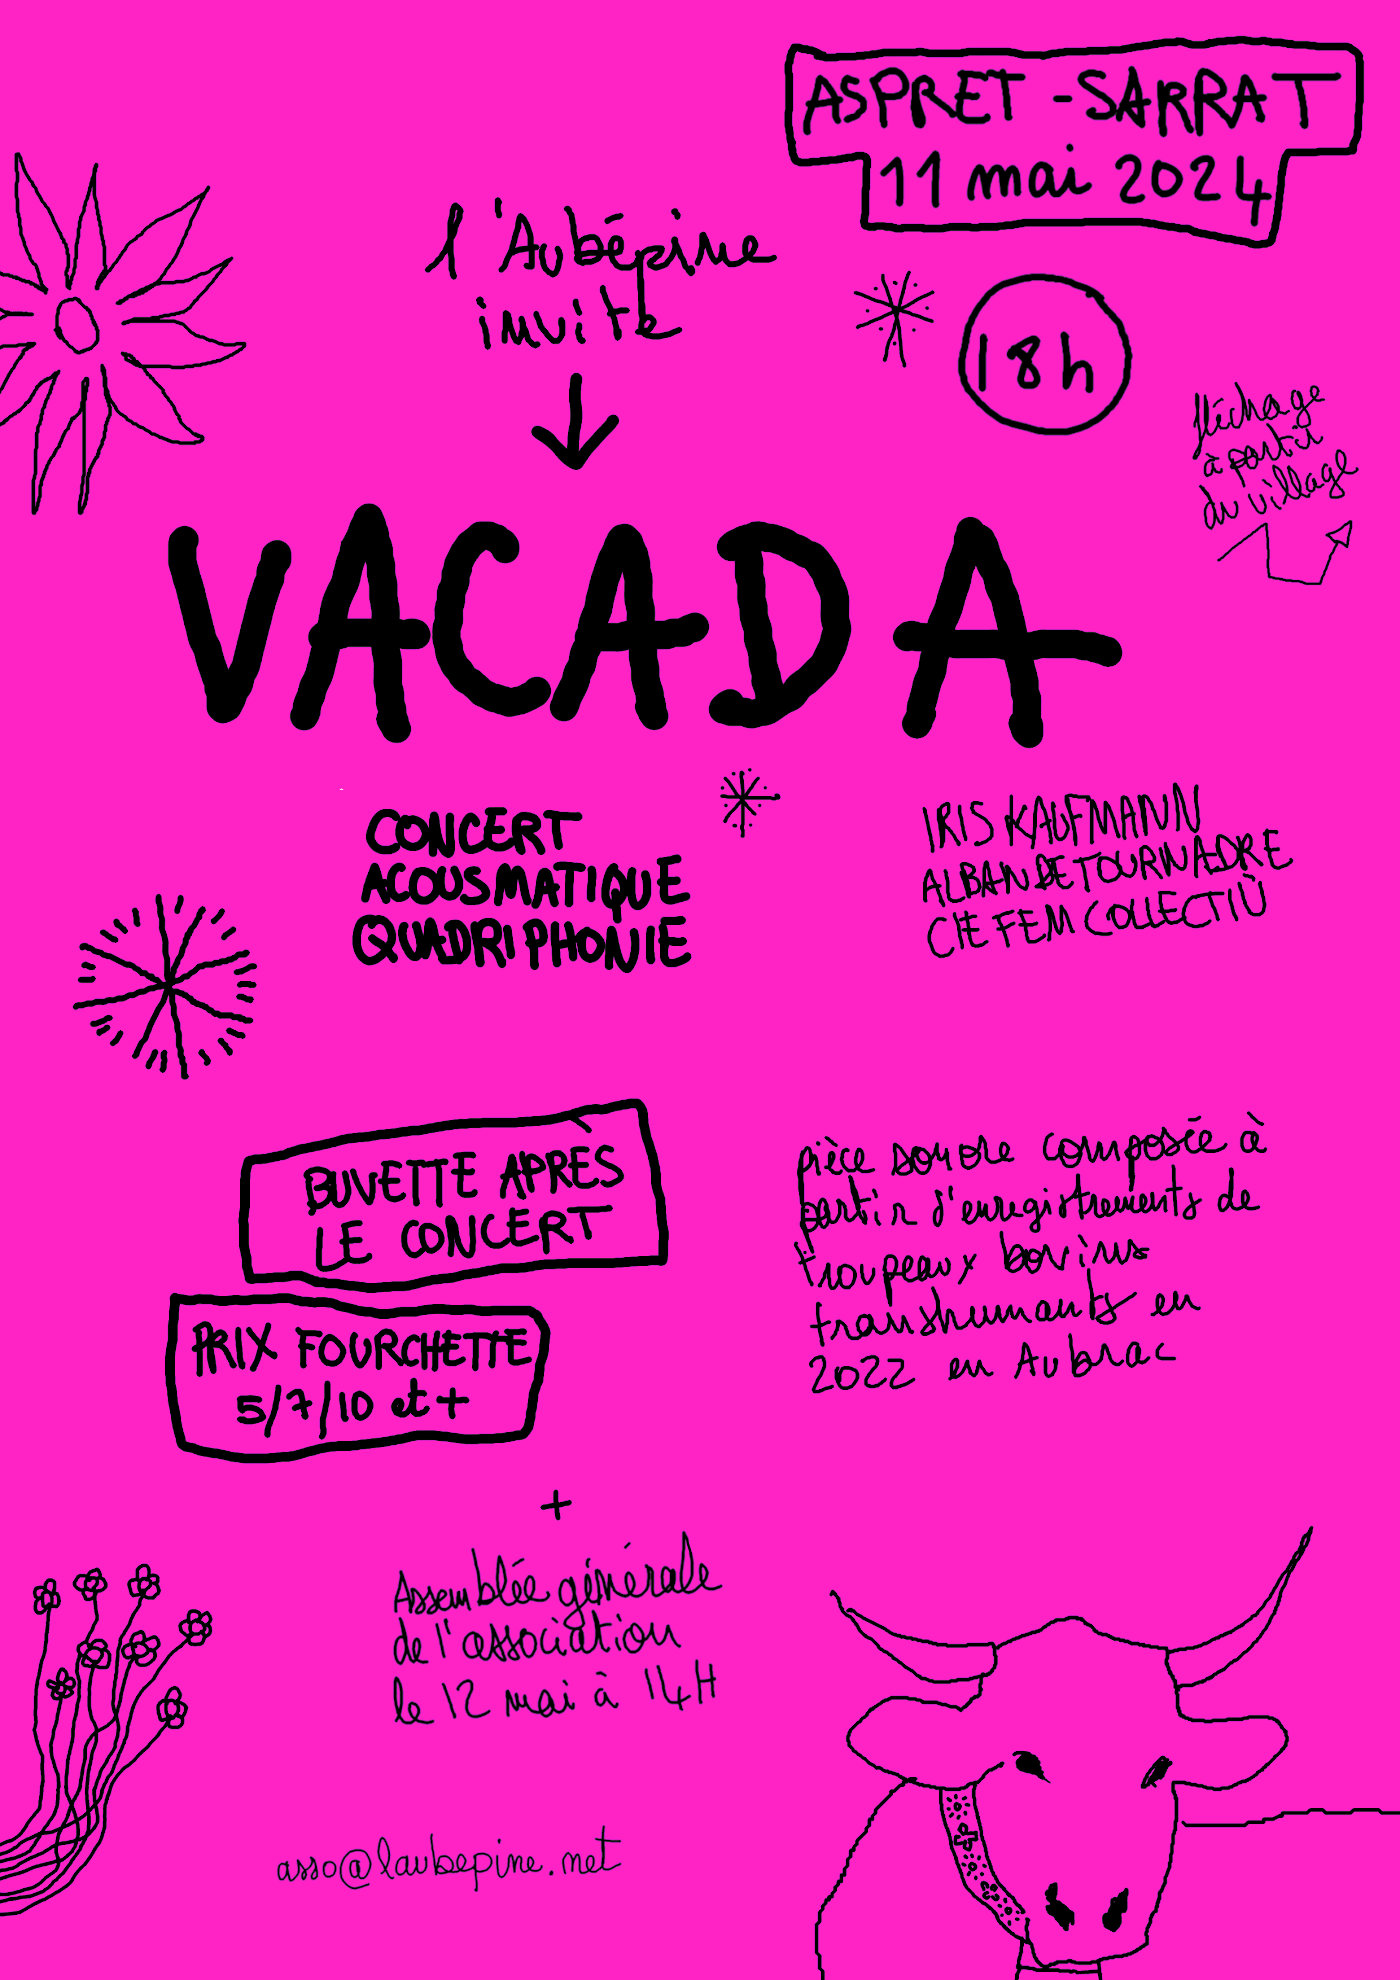 ASPRET-SARRAT
11 mai 2024
l'Aubépine
invite
18h
fléchage
à partir
du village
VACADA
CONCERT
ACOUSMATIQUE
QUADRIPHONIE
IRIS KAUFMANN
ALBAN DE TOURNADRE
CIE FEM COLLECTIÙ
BUVETTE APRÈS
LE CONCERT
PRIX FOURCHETTE
5/7/10 et +
pièce sonore composée à
partir d'enregistrements de
troupeaux bovins
transhumants en
2022 en Aubrac
+
Assemblée générale
de l'association
le 12 mai à 14H
asso@laubepine.net